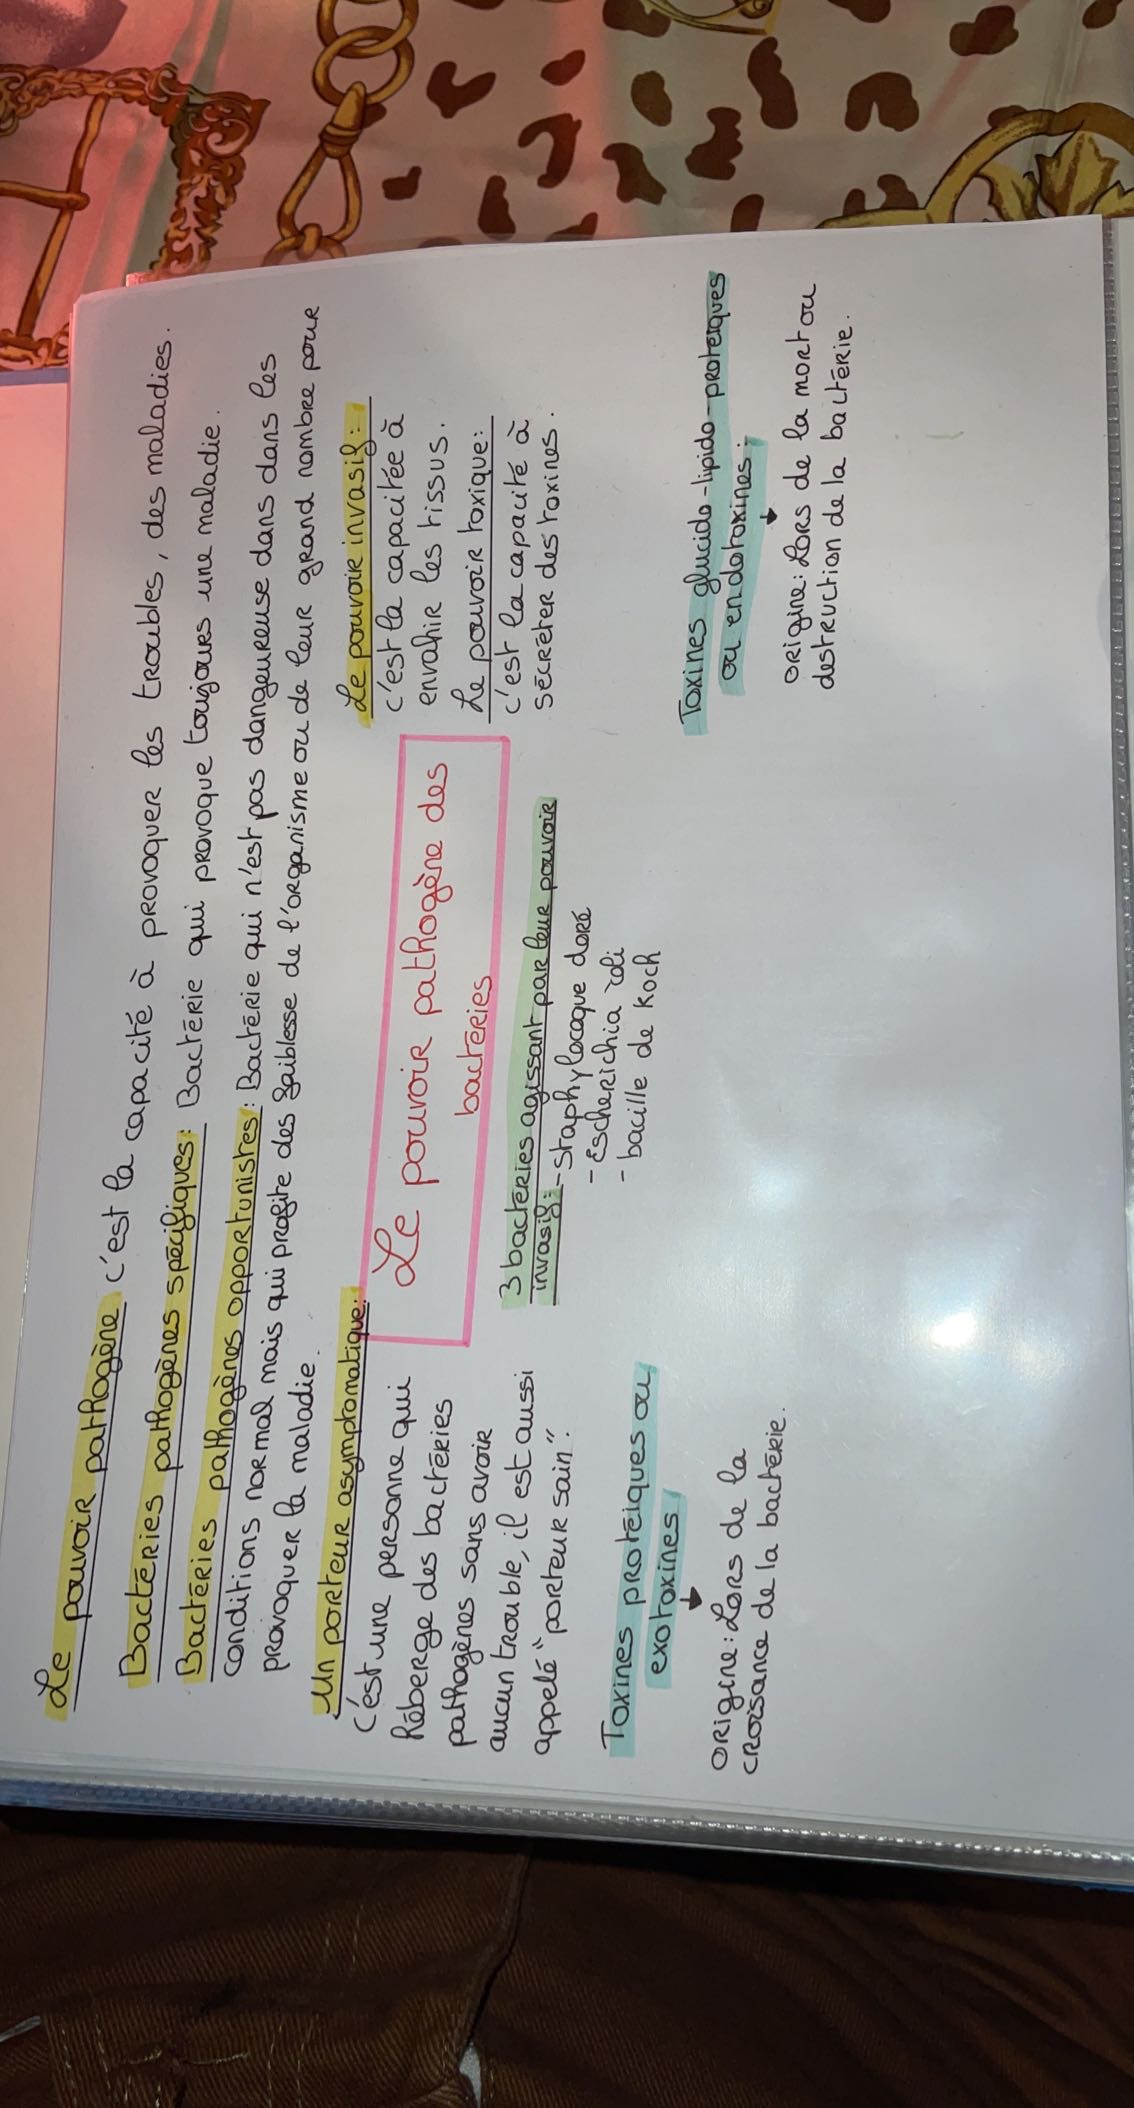 Le pouvoir pathogène c'est la capacité à provoquer les troubles, des maladies.
Bactéries pathogènes spécifiques: Bactérie qui provoque toujours une maladie.
Bactéries pathogènes opportunistes: Bactérie qui n'est pas dangeureuse dans dans les
conditions normal mais qui profite des faiblesse de l'organisme ou de leur grand nombre pour
provoquer la maladie.
Un porteur asymptomatique:
c'est une personne qui
héberge des bactéries
pathogènes sans avoir
aucun trouble, il est aussi
appelé "porteur sain".
Le pouvoir pathogène des
bactéries
Le pouvoir invasif:
c'est la capacitée à
envahir les tissus.
Le pouvoir toxique:
c'est la capacité à
sécréter des toxines.
3 bactéries agissant par leur pouvoir
invasif: - Staphylocoque doré
- Escherichia coli
- bacille de Koch
Toxines protéiques ou
exotoxines
↓
Origine: Lors de la
croisance de la bactérie.
Toxines glucido-lipido-protéiques
ou endotoxines:
↓
Origine: Lors de la mort ou
destruction de la bactérie.